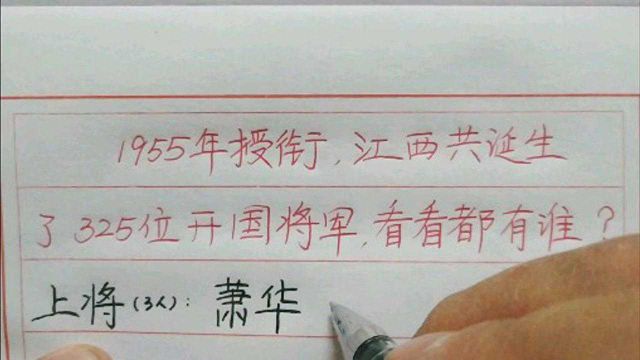 1955年授衔,江西共诞生
了325位开国将军,看看都有谁?
上将(3人):萧华